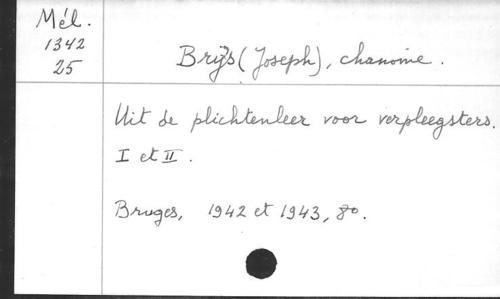 Mél.
1342
25
Brijs (Joseph), chanoine.
Uit de plichtenleer voor verpleegsters.
I et II.
Bruges, 1942 et 1943, 8o.